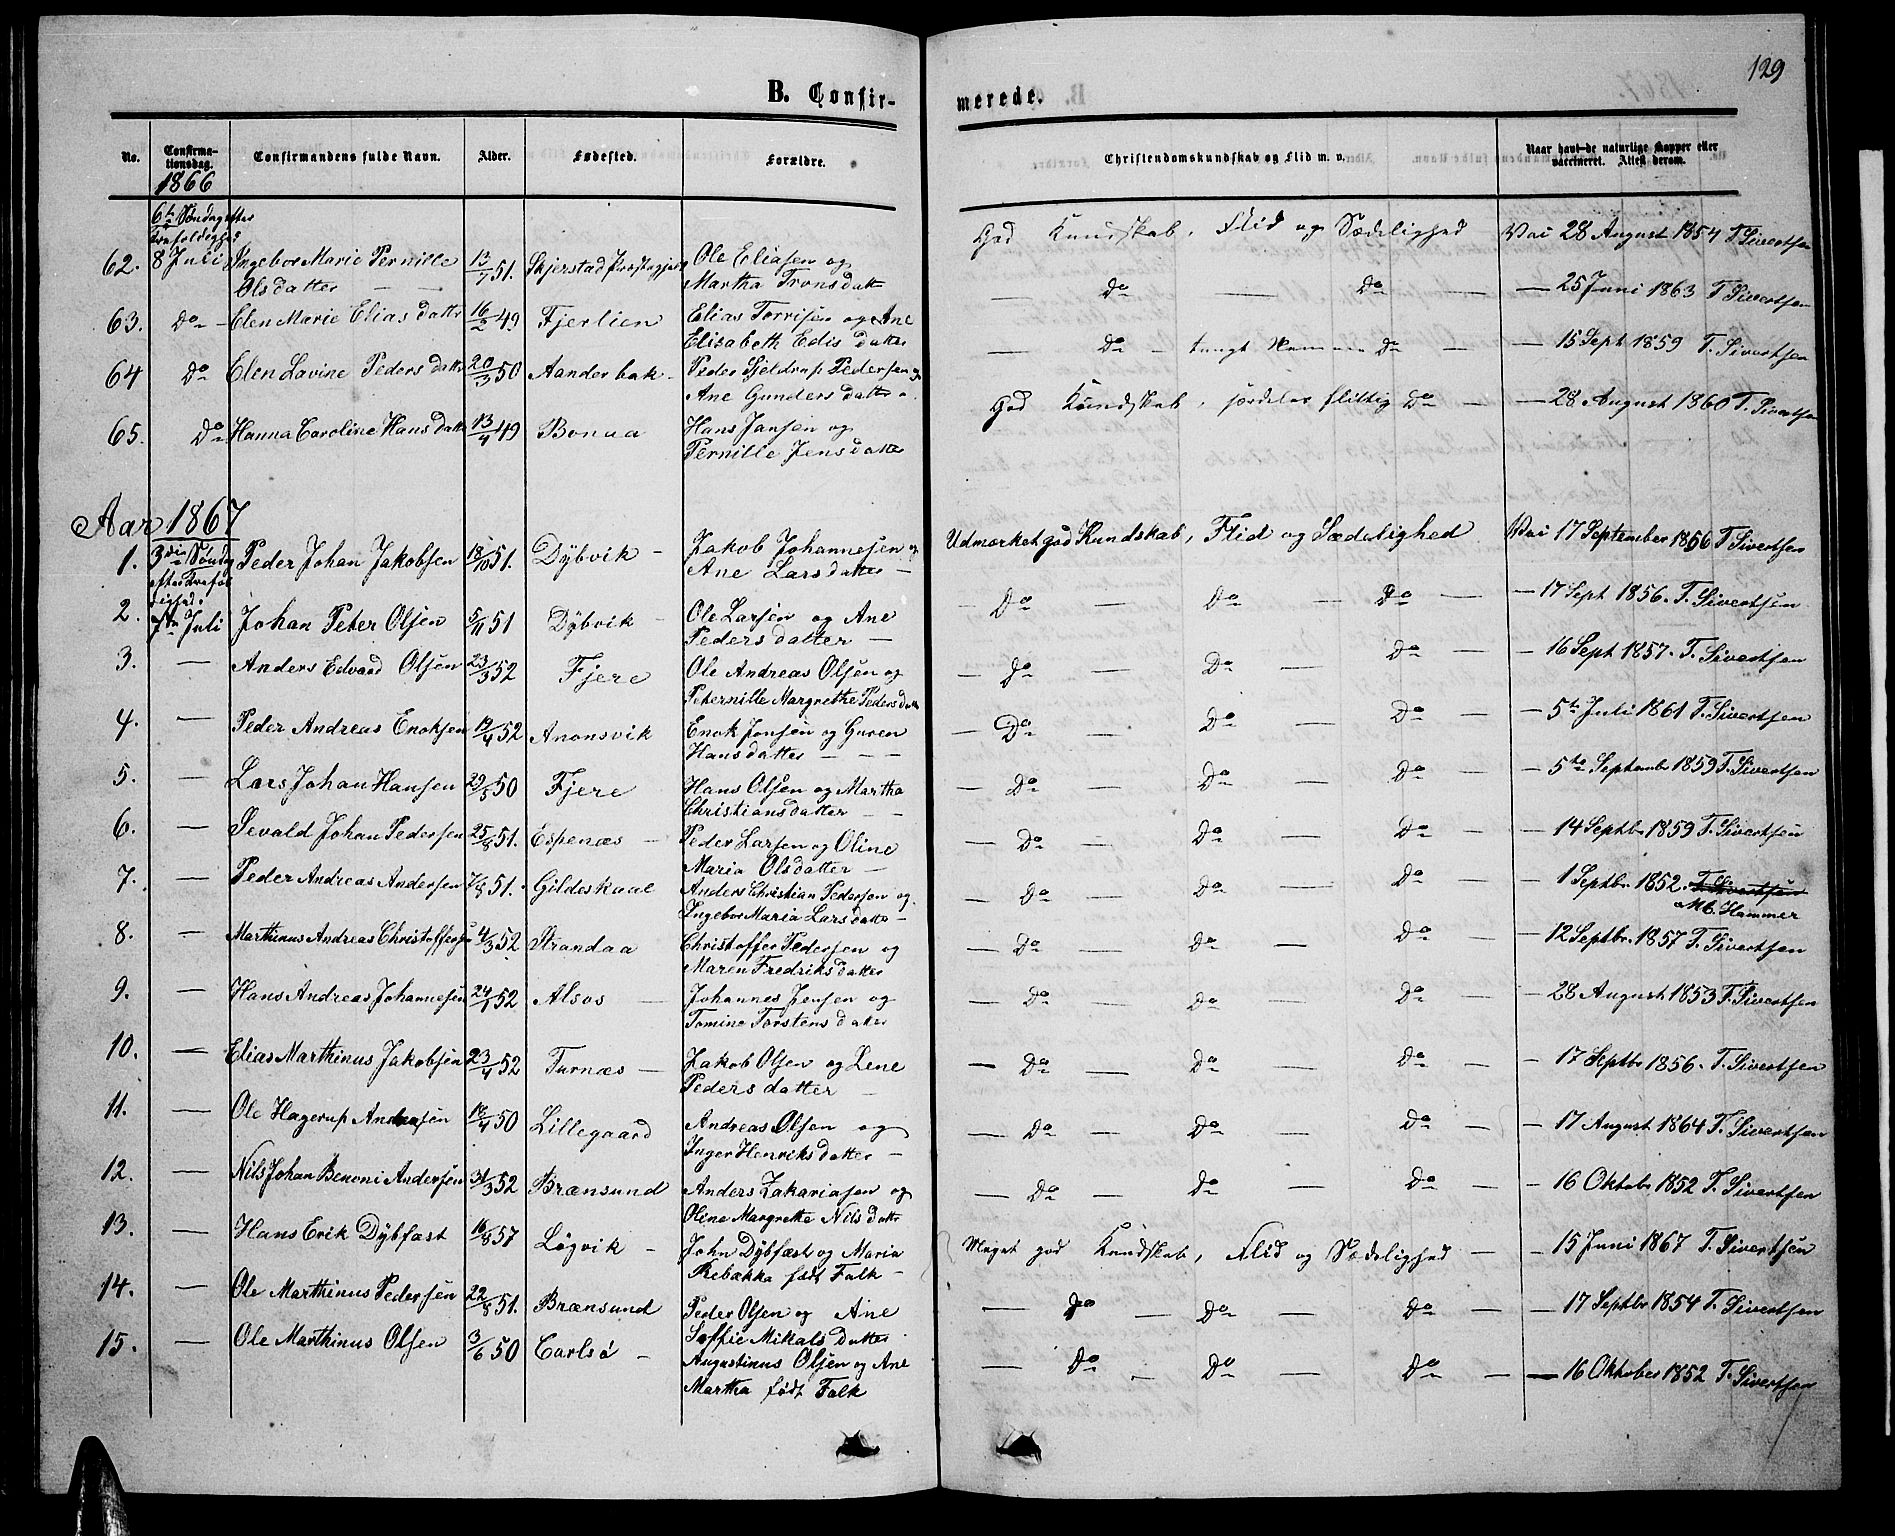 129
B. Confir-
merede.
No.
Confirma-
tionsdag.
Confirmandens fulde Navn.
Alder.
Fødested.
Forældre.
Christendomskundskab og Flid m. v.
Naar havt de naturlige Kopper eller
vaccineret. Attest derom.
1866
6te Søndag efter
trefoldighed
62. 8 Juli Ingebor Marie Pernille 13/7 51. Skjerstad Ole Eliasen og God Kundskab, Flid og Sædelighed Vac 28 August 1854 T Sivertsen
Olsdatter — — Martha Tronsdatter
63. Do — Elen Marie Eliasdatter 16/2 49 Fjerlien Elias Torrisen og Ane — Do — Do — — 25 Juni 1863 T. Sivertsen
Elisabeth Edisdatter
64 Do Elen Lavine Pedersdatter 20/3 50 Aanderbak — Peder Sjeldrup Pedersen og — Do — tungt Nemme Do — — 15 Sept 1859 T. Sivertsen
Ane Gundersdatter
65. Do Hanna Caroline Hansdatter 13/4 49 Bonua Hans Jansen og God Kundskab, flittig Do — — 28 August 1860 T. Sivertsen
Pernille Jensdatter
Aar 1867
1. 3die Søndag Peder Johan Jakobsen 18/10 51. Dybvik — Jakob Johannesen og Udmærket god Kundskab, Flid og Sædelighed Vac 17 September 1856 T Sivertsen
efter trefol Ane Larsdatter —
dighed.
2. 7de Juli Johan Peter Olsen 5/11 51 Dybvik — Ole Larsen og Ane — Do — Do — Do — — 17 Sept 1856. T. Sivertsen
Pedersdatter —
3. — Anders Edvard Olsen 23/3 52 Fjere Ole Andreas Olsen og — Do — Do — Do — — 16 Sept 1857. T. Sivertsen
Peternille Margrethe Pedersdatter
4. — Peder Andreas Enoksen 19/4 52 Anonsvik Enok Jonsen og Guren — Do — Do — Do — — 5te Juli 1861 T. Sivertsen
Hansdatter — — —
5. — Lars Johan Hansen 29/8 50 Fjere Hans Olsen og Martha — Do — Do — Do — — 5te September 1859 T. Sivertsen
Christiansdatter — —
6. — Sevald Johan Pedersen 25/8 51. Espenæs — Peder Larsen og Oline — Do — Do — Do — — 14 Septbr 1859 T. Sivertsen
Maria Olsdatter —
7. — Peder Andreas Andersen 7/8 51. Gildeskaal Anders Christian Pedersen og — Do — Do — Do — — 1 Septbr. 1852. T. Sivertsen
Ingebor Maria Larsdatter — MC. Hammer
8. — Marthinus Andreas Christoffersen 4/3 52 Strandaa Christoffer Pedersen og — Do — Do — Do — — 12 Septbr. 1857 T. Sivertsen
Maren Fredriksdatter
9. — Hans Andreas Johannesen 24/1 52 Alsos — Johannes Jensen og — Do — Do — Do — — 28 August 1853 T. Sivertsen
Tomine Torstensdatter
10. — Elias Marthinus Jakobsen 23/4 52 Furnæs — Jakob Olsen og Lene — Do — Do — Do — — 17 Septbr 1856. T. Sivertsen
Pedersdatter —
11. — Ole Hagerup Andreasen 18/4 50 Lillegaard Andreas Olsen og — Do — Do — Do — — 17 August 1864 T. Sivertsen
Inger Henriksdatter —
12. — Nils Johan Benoni Andersen 31/3 52 Brænsund Anders Zakariasen og — Do — Do — Do — — 16 Oktober 1852 T. Sivertsen
Oline Margrette Nilsdatter
13. — Hans Erik Dybfæst 16/8 57 Løgvik — John Dybfæst og Maria Meget god Kundskab, Flid og Sædelighed — — 15 Juni 1867 T. Sivertsen
Rebækka født Falk —
14. — Ole Marthinus Pedersen 22/8 51. Brænsund Peder Olsen og Ane — Do — Do — Do — — 17 Septbr 1854 T. Sivertsen
Soffie Mikalsdatter
15. — Ole Marthinus Olsen 3/6 50 Carlsø — Augustinus Olsen og Ane — Do — Do — Do — — 16 Oktober 1852 T. Sivertsen
Martha født Falk